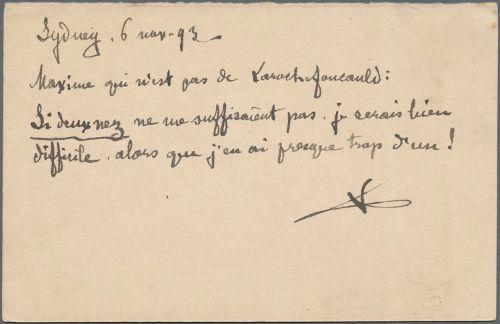 Sydney. 6 nov. 93
Maxime qui n'est pas de Larochefoucauld :
Si deux nez ne me suffisaient pas, je serais bien
difficile, alors que j'en ai presque trop d'un !